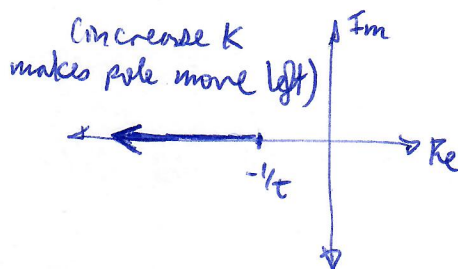 (increase K
makes pole move left)
Im
Re
-1/τ